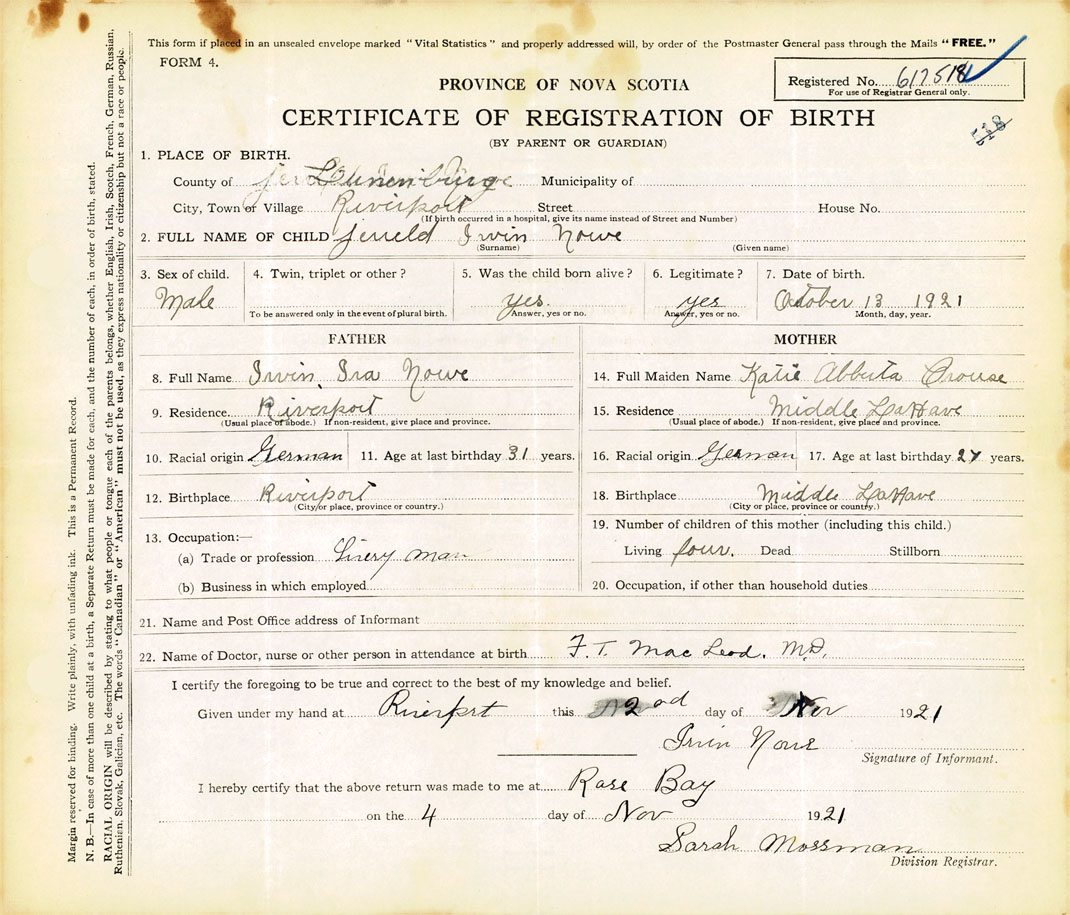 This form if placed in an unsealed envelope marked "Vital Statistics" and properly addressed will, by order of the Postmaster General pass through the Mails "FREE."
FORM 4.
Registered No. 617518
For use of Registrar General only.
518
PROVINCE OF NOVA SCOTIA
CERTIFICATE OF REGISTRATION OF BIRTH
(BY PARENT OR GUARDIAN)
1. PLACE OF BIRTH.
County of Lunenburg Municipality of
City, Town or Village Riverport Street House No.
(If birth occurred in a hospital, give its name instead of Street and Number)
2. FULL NAME OF CHILD Jerreld Irvin Nowe
(Surname) (Given name)
3. Sex of child. 4. Twin, triplet or other? 5. Was the child born alive? 6. Legitimate? 7. Date of birth.
Male yes. yes October 13 1921
To be answered only in the event of plural birth. Answer, yes or no. Answer, yes or no. Month, day, year.
FATHER
8. Full Name Irvin Ira Nowe
9. Residence. Riverport
(Usual place of abode.) If non-resident, give place and province.
10. Racial origin German 11. Age at last birthday 31 years.
12. Birthplace Riverport
(City or place, province or country.)
13. Occupation:—
(a) Trade or profession Livery man
(b) Business in which employed
MOTHER
14. Full Maiden Name Katie Abbuta Crouse
15. Residence Middle LaHave
(Usual place of abode.) If non-resident, give place and province.
16. Racial origin German 17. Age at last birthday 27 years.
18. Birthplace Middle LaHave
(City or place, province or country.)
19. Number of children of this mother (including this child.)
Living four. Dead Stillborn
20. Occupation, if other than household duties
21. Name and Post Office address of Informant
22. Name of Doctor, nurse or other person in attendance at birth F. T. Mac Leod. M.D.
I certify the foregoing to be true and correct to the best of my knowledge and belief.
Given under my hand at Riverport this 2nd day of Nov 1921
Irvin Nowe
Signature of Informant.
I hereby certify that the above return was made to me at Rose Bay
on the 4 day of Nov 1921
Sarah Mossman
Division Registrar.
Margin reserved for binding. Write plainly, with unfading ink. This is a Permanent Record.
N. B.—In case of more than one child at a birth, a Separate Return must be made for each, and the number of each, in order of birth, stated.
RACIAL ORIGIN will be described by stating to what people or tongue each of the parents belongs, whether English, Irish, Scotch, French, German, Russian,
Ruthenien, Slovak, Galician, etc. The words "Canadian" or "American" must not be used, as they express nationality or citizenship but not a race or people.